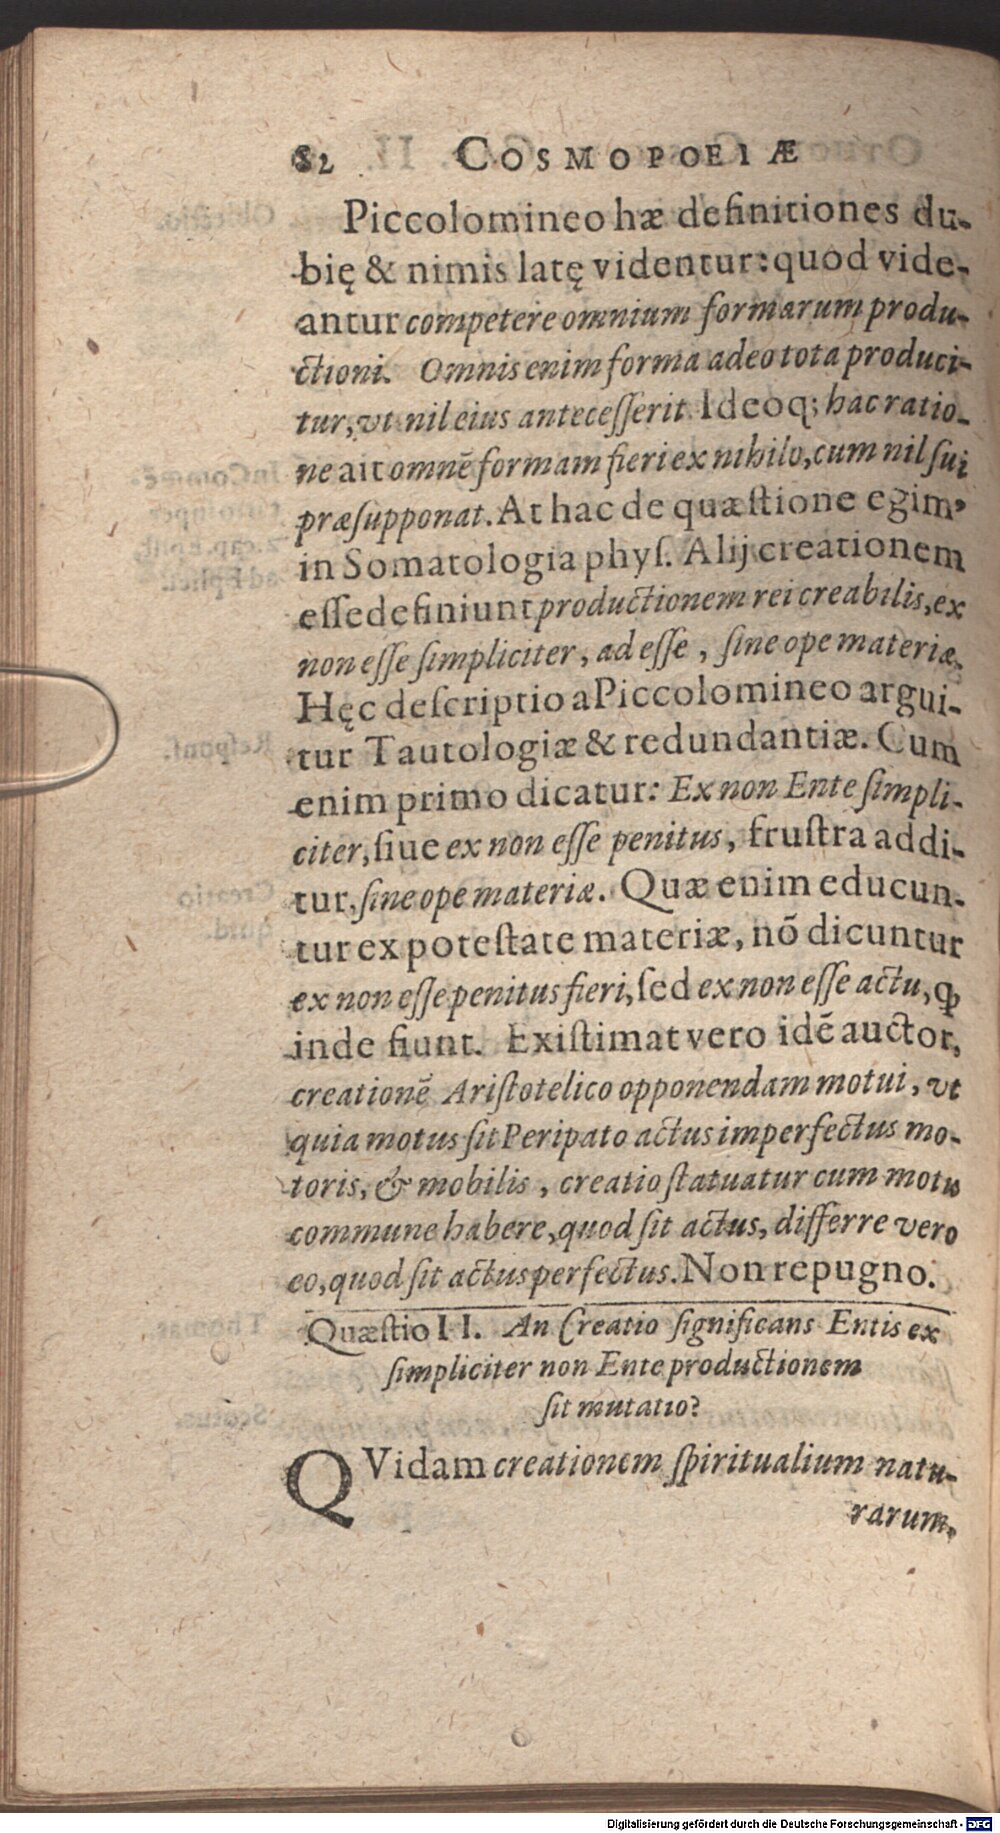 82 COSMOPOEIÆ
Piccolomineo hæ definitiones du-
bię & nimis latę videntur: quod vide-
antur competere omnium formarum produ-
ctioni. Omnis enim forma adeo tota produci-
tur, vt nil eius antecesserit. Ideoq; hac ratio-
ne ait omnē formam fieri ex nihilo, cum nil sui
præsupponat. At hac de quæstione egim⁹
in Somatologia phys. Alij creationem
esse definiunt productionem rei creabilis, ex
non esse simpliciter, ad esse, sine ope materiæ.
Hęc descriptio a Piccolomineo argui-
tur Tautologiæ & redundantiæ. Cum
enim primo dicatur: Ex non Ente simpli-
citer, siue ex non esse penitus, frustra addi-
tur, sine ope materiæ. Quæ enim educun-
tur ex potestate materiæ, nō dicuntur
ex non esse penitus fieri, sed ex non esse actu, ꝙ
inde fiunt. Existimat vero idē auctor,
creationē Aristotelico opponendam motui, vt
quia motus sit Peripato actus imperfectus mo-
toris, & mobilis, creatio statuatur cum motu
commune habere, quod sit actus, differre vero
eo, quod sit actus perfectus. Non repugno.
Quæstio II. An Creatio significans Entis ex
simpliciter non Ente productionem
sit mutatio?
QVidam creationem spiritualium natu-
rarum,
Digitalisierung gefördert durch die Deutsche Forschungsgemeinschaft - DFG